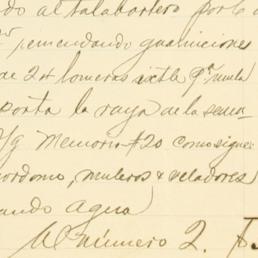 do al talabartero por 6 d
, remendando guarniciones
de 24 lomeras ixtle pª mula
porta la raya de la sema-
Memoria #20 como sigue
ordomo, muleros & veladores
ando agua
Al número 2. $